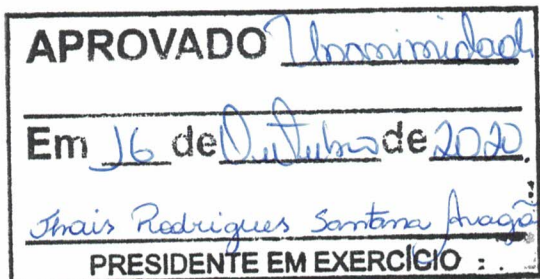 APROVADO Unanimidade
Em 16 de Outubro de 2020.
Thais Rodrigues Santana Aragão
PRESIDENTE EM EXERCÍCIO